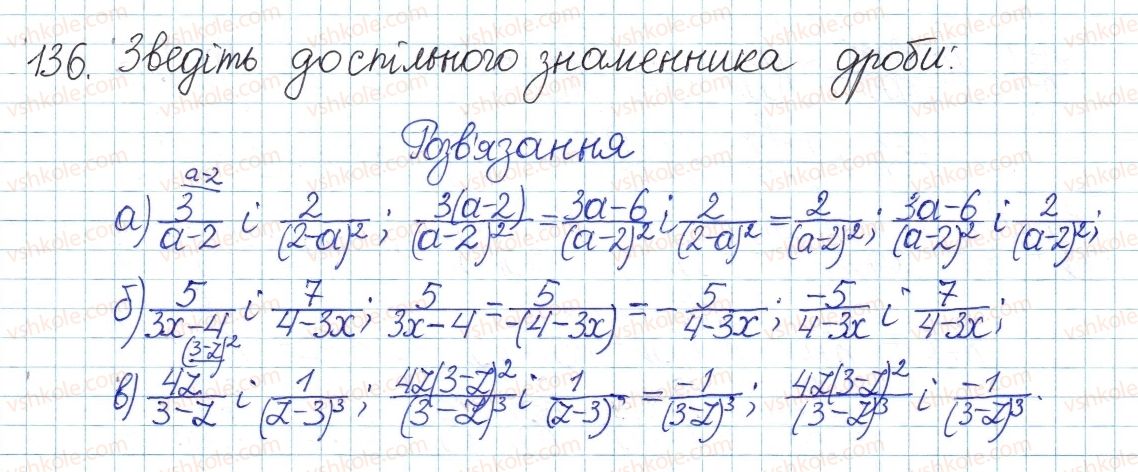 136. Зведіть до спільного знаменника дроби:
Розв'язання
а) 3/(a-2) [a-2] і 2/(2-a)²; 3(a-2)/(a-2)² = (3a-6)/(a-2)² і 2/(2-a)² = 2/(a-2)²; (3a-6)/(a-2)² і 2/(a-2)²;
б) 5/(3x-4) і 7/(4-3x); 5/(3x-4) = 5/(-(4-3x)) = -5/(4-3x); -5/(4-3x) і 7/(4-3x);
в) 4z/(3-z) [(3-z)²] і 1/(z-3)³; 4z(3-z)²/(3-z)³ і 1/(z-3)³ = -1/(3-z)³; 4z(3-z)²/(3-z)³ і -1/(3-z)³.